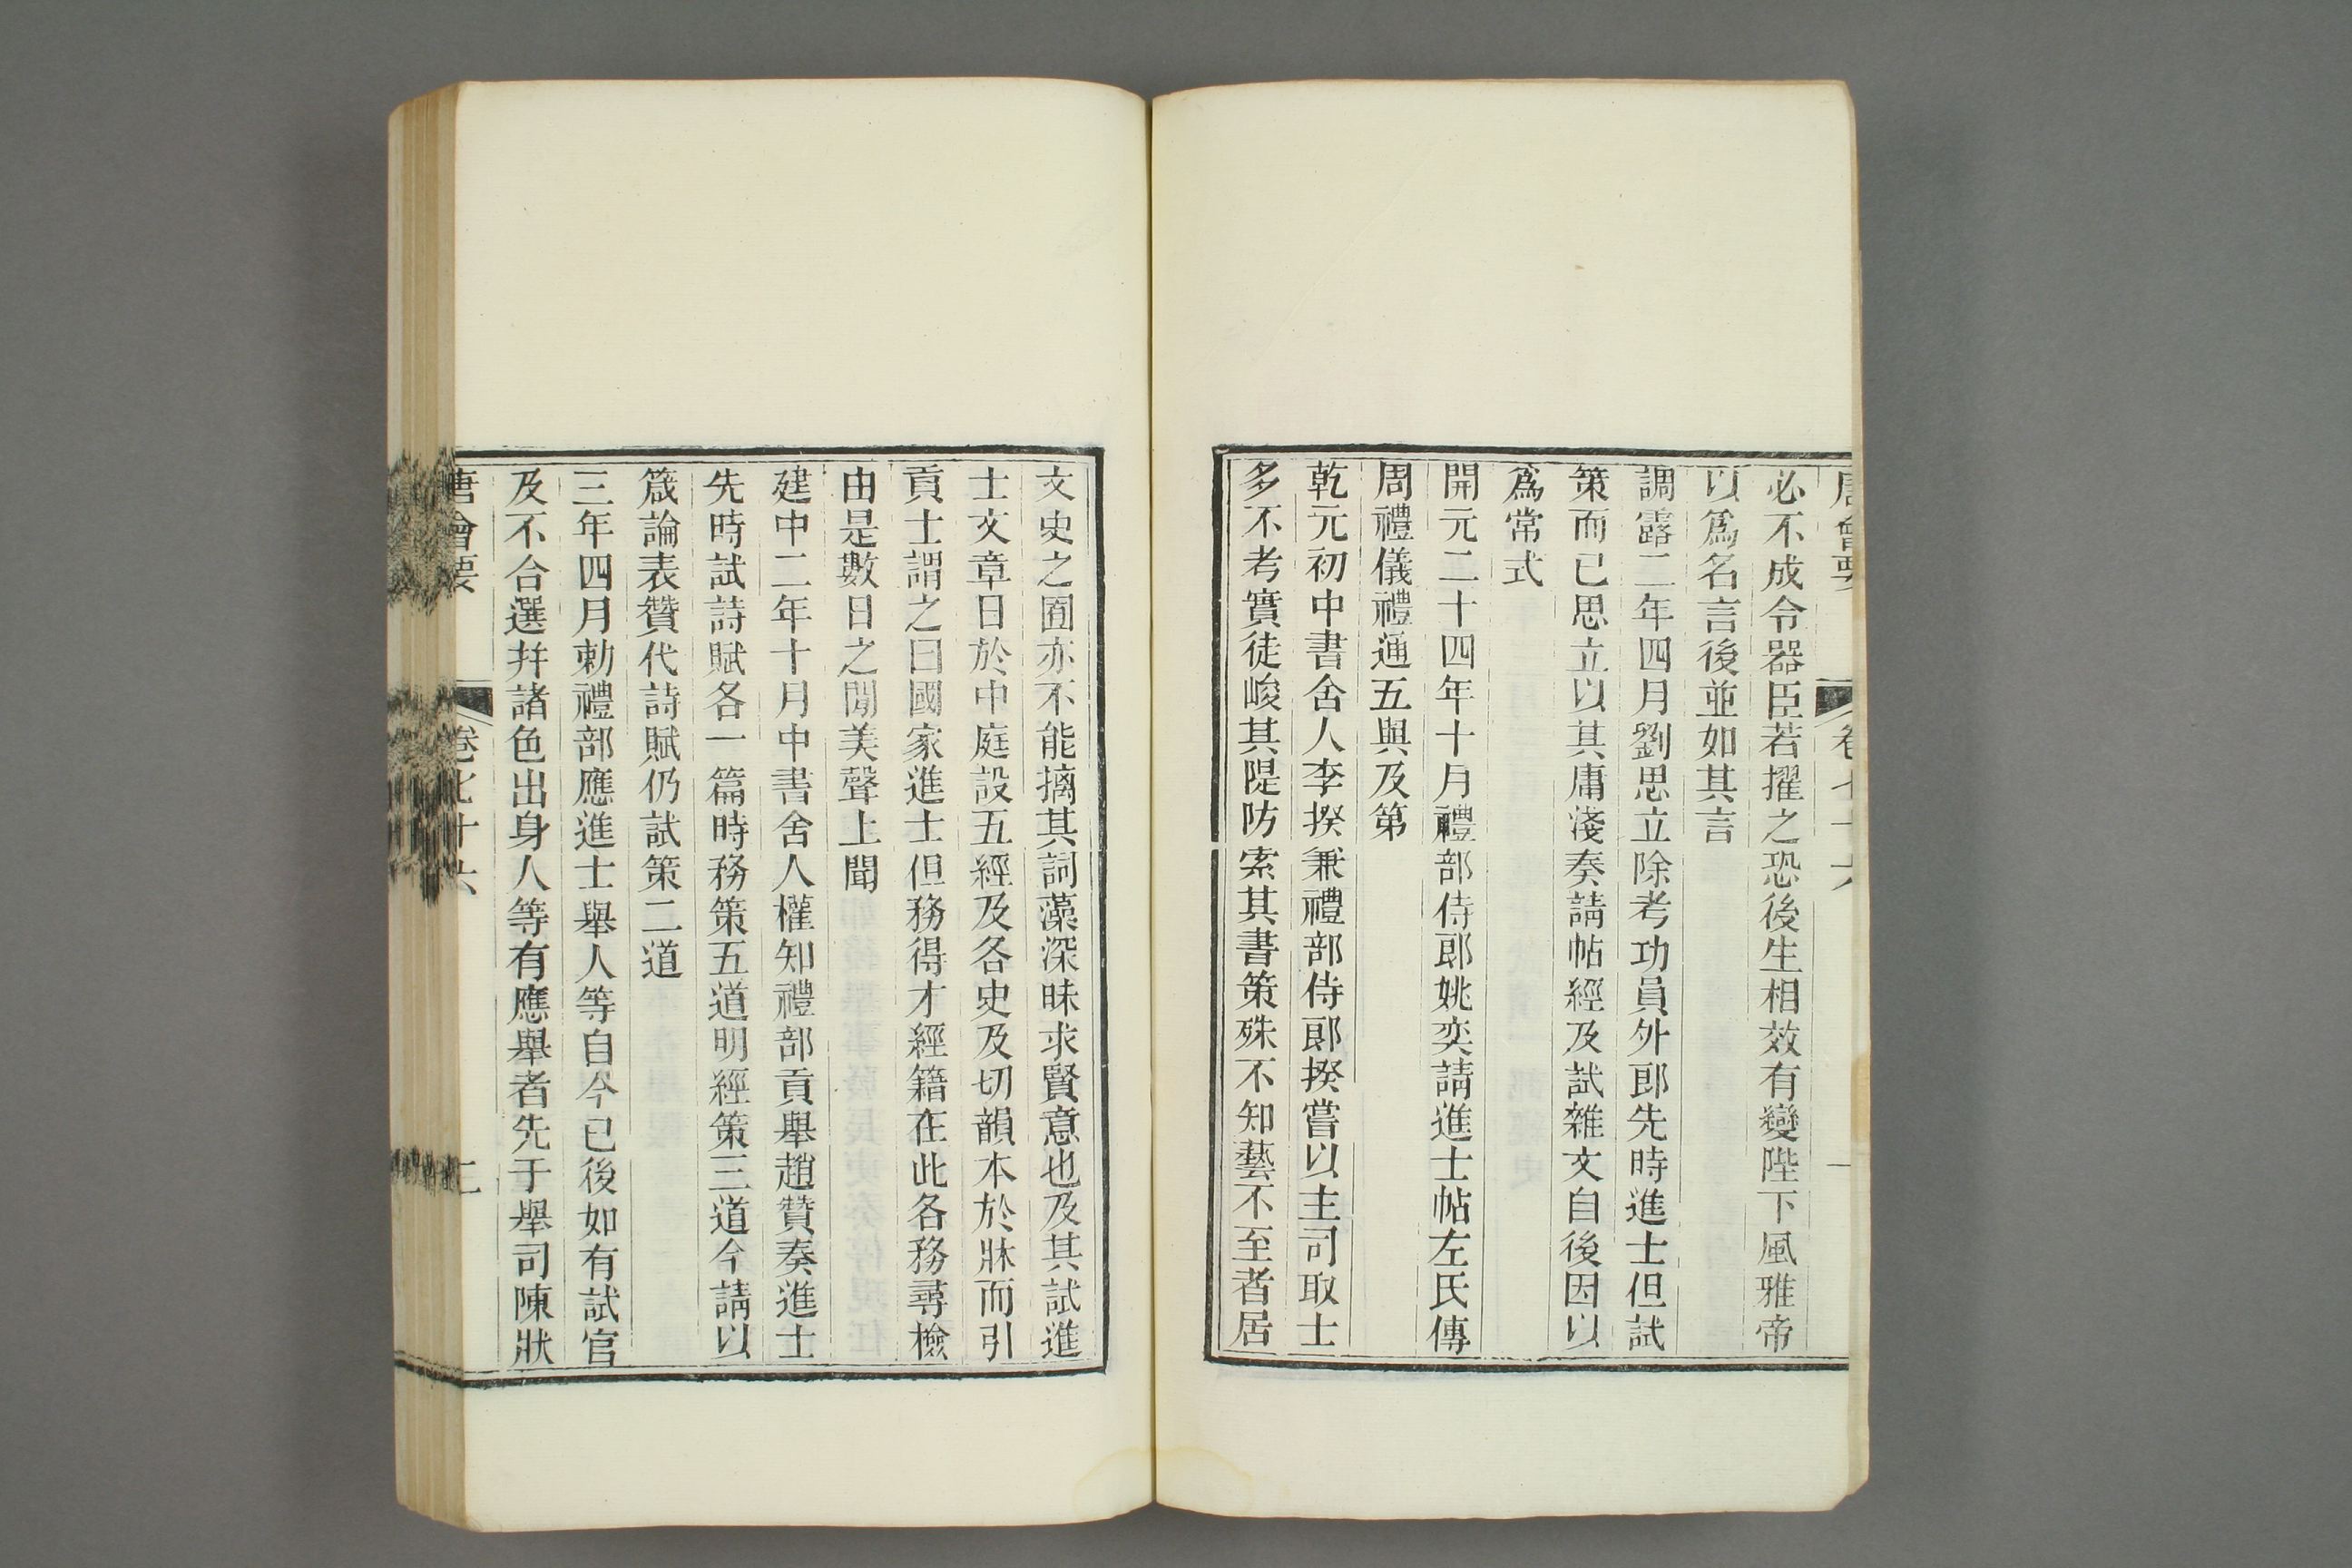 唐會要 卷七十六 一
必不成令器臣若擢之恐後生相效有變陛下風雅帝
以爲名言後並如其言
調露二年四月劉思立除考功員外郎先時進士但試
策而已思立以其庸淺奏請帖經及試雜文自後因以
爲常式
開元二十四年十月禮部侍郎姚奕請進士帖左氏傳
周禮儀禮通五與及第
乾元初中書舍人李揆兼禮部侍郎揆嘗以主司取士
多不考實徒峻其隄防索其書策殊不知藝不至者居
文史之囿亦不能摛其詞藻深昧求賢意也及其試進
士文章日於中庭設五經及各史及切韻本於牀而引
貢士謂之曰國家進士但務得才經籍在此各務尋檢
由是數日之閒美聲上聞
建中二年十月中書舍人權知禮部貢舉趙贊奏進士
先時試詩賦各一篇時務策五道明經策三道今請以
箴論表贊代詩賦仍試策二道
三年四月勅禮部應進士舉人等自今已後如有試官
及不合選幷諸色出身人等有應舉者先于舉司陳狀
唐會要 卷七十六 二